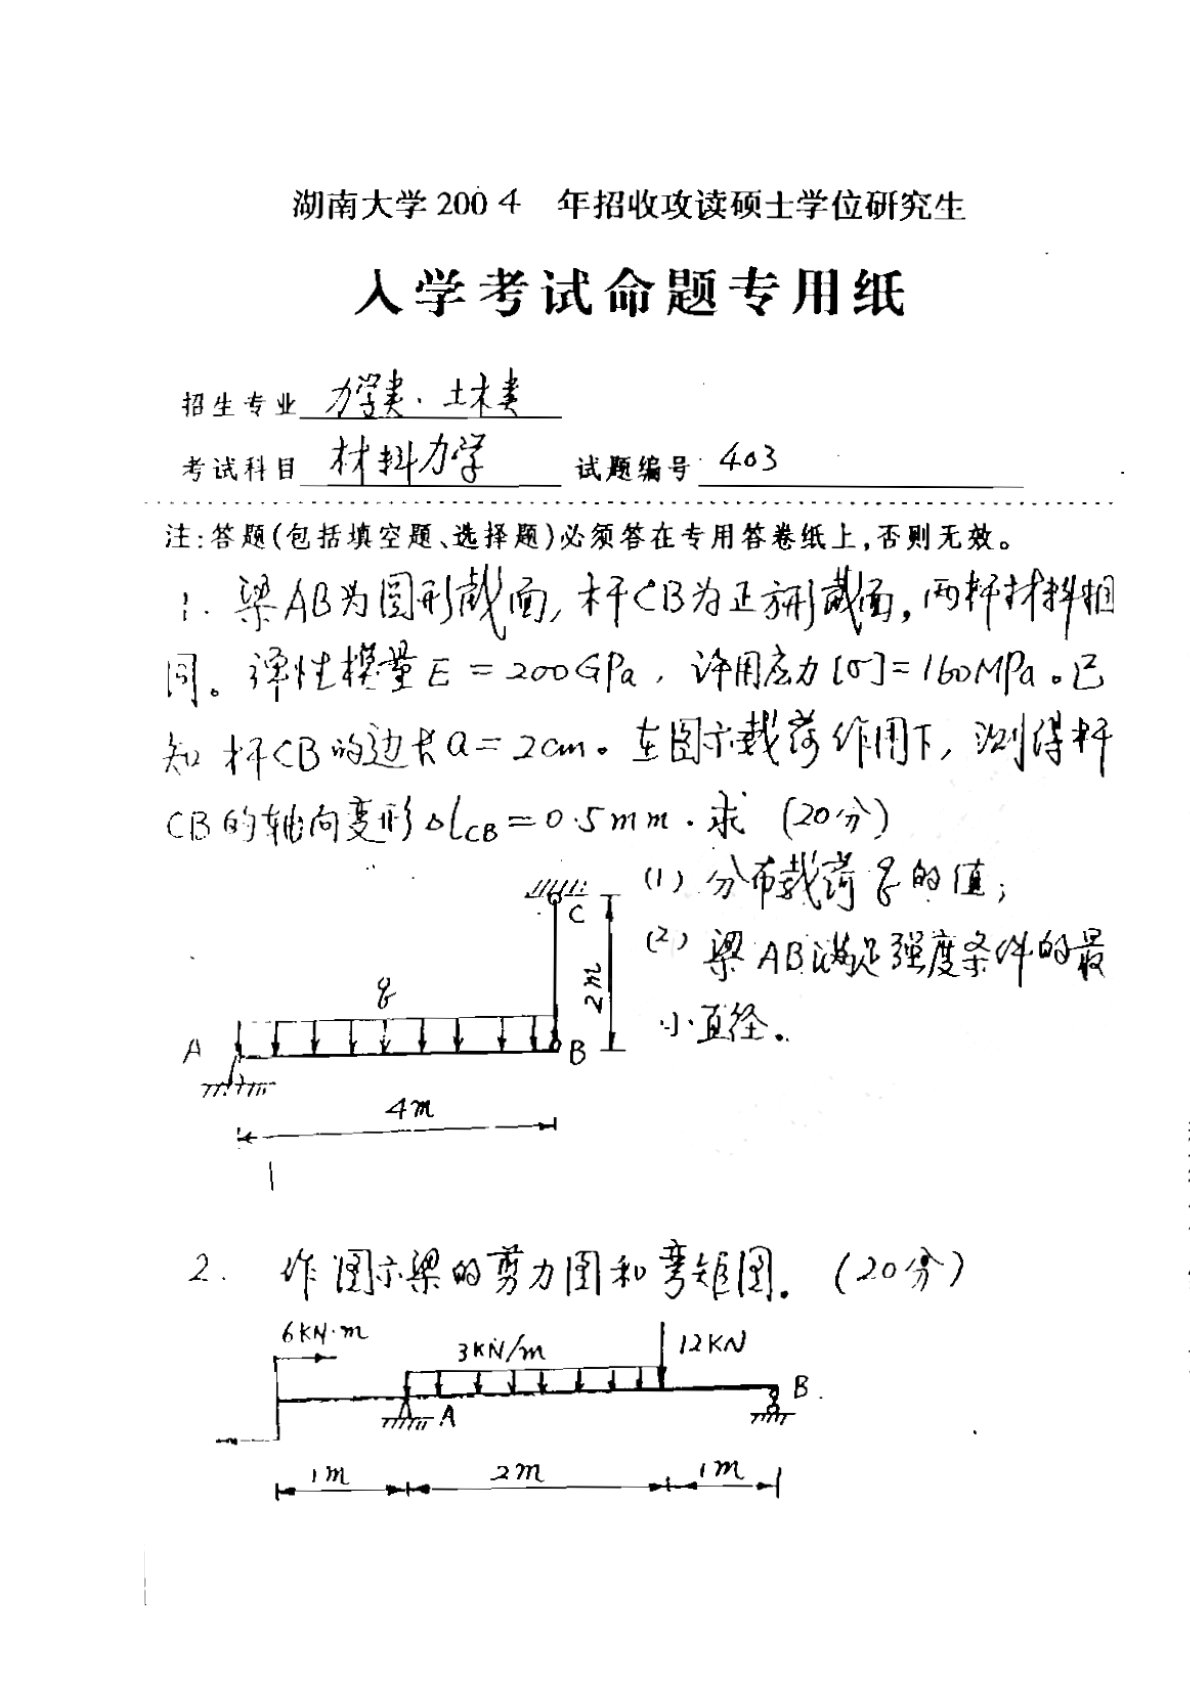 湖南大学2004 年招收攻读硕士学位研究生
入学考试命题专用纸
招生专业 力学类、土木类
考试科目 材料力学 试题编号 403
注:答题(包括填空题、选择题)必须答在专用答卷纸上,否则无效。
1. 梁AB为圆形截面,杆CB为正方形截面,两杆材料相
同。弹性模量E=200GPa,许用应力[σ]=160MPa。已
知杆CB的边长a=2cm。在图示载荷作用下,测得杆
CB的轴向变形ΔlCB=0.5mm.求 (20分)
(1) 分布载荷q的值;
(2) 梁AB满足强度条件的最
小直径。
C
2m
q
A
B
4m
2. 作图示梁的剪力图和弯矩图。(20分)
6KN·m
3KN/m
12KN
A
B
1m 2m 1m